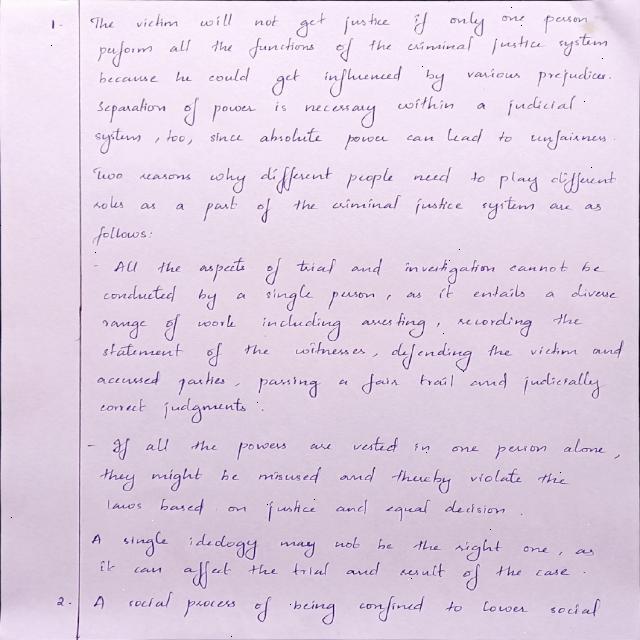 1. The victim will not get justice if only one person
perform all the functions of the criminal justice system
because he could get influenced by various prejudices.
Separation of power is necessary within a judicial
system, too, since absolute power can lead to unfairness.
Two reasons why different people need to play different
roles as a part of the criminal justice system are as
follows:
- All the aspects of trial and investigation cannot be
conducted by a single person, as it entails a diverse
range of work including arresting, recording the
statement of the witnesses, defending the victim and
accused parties, passing a fair trail and judicially
correct judgments.
- If all the powers are vested in one person alone,
they might be misused and thereby violate the
laws based on justice and equal decision.
A single idedogy may not be the right one, as
it can affect the trial and result of the case.
2. A social process of being confined to lower social